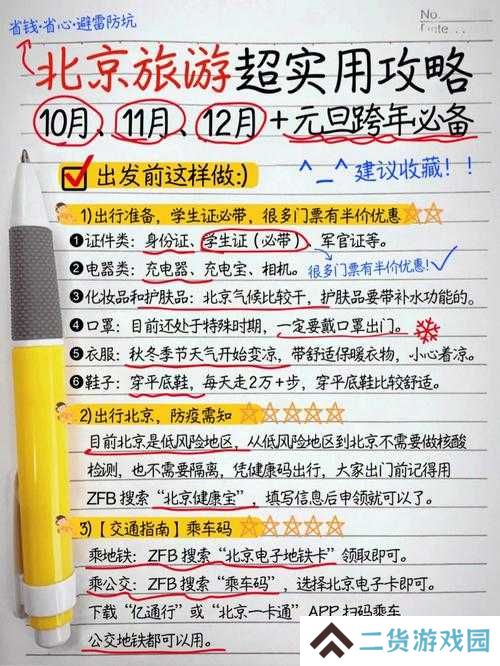 省钱·省心·避雷防坑
No.
北京旅游超实用攻略
10月、11月、12月+元旦跨年必备
出发前这样做:)
^_^ 建议收藏！！
1)出行准备，学生证必带，很多门票有半价优惠
❶证件类：身份证、学生证（必带）、军官证等。
❷电器类：充电器、充电宝、相机。
很多门票有半价优惠!
❸化妆品和护肤品：北京气候比较干，护肤品要带补水功能的。
❹口罩：目前还处于特殊时期，一定要戴口罩出门。
❺衣服：秋冬季节天气开始变凉，带舒适保暖衣物，小心着凉。
❻鞋子：穿平底鞋，每天走2万+步，穿平底鞋比较舒适。
2)出行北京，防疫需知
目前北京是低风险地区，从低风险地区到北京不需要做核酸
检测，也不需要隔离，凭健康码出行，大家出门前记得用
ZFB搜索“北京健康宝”，填写信息后申领就可以了。
3)【交通指南】乘车码
乘地铁：ZFB搜索“北京电子地铁卡”领取即可。
乘公交：ZFB搜索“乘车码”，选择北京电子卡即可。
下载“亿通行”或“北京一卡通”APP扫码乘车
公交地铁都可以用。
二货游戏园